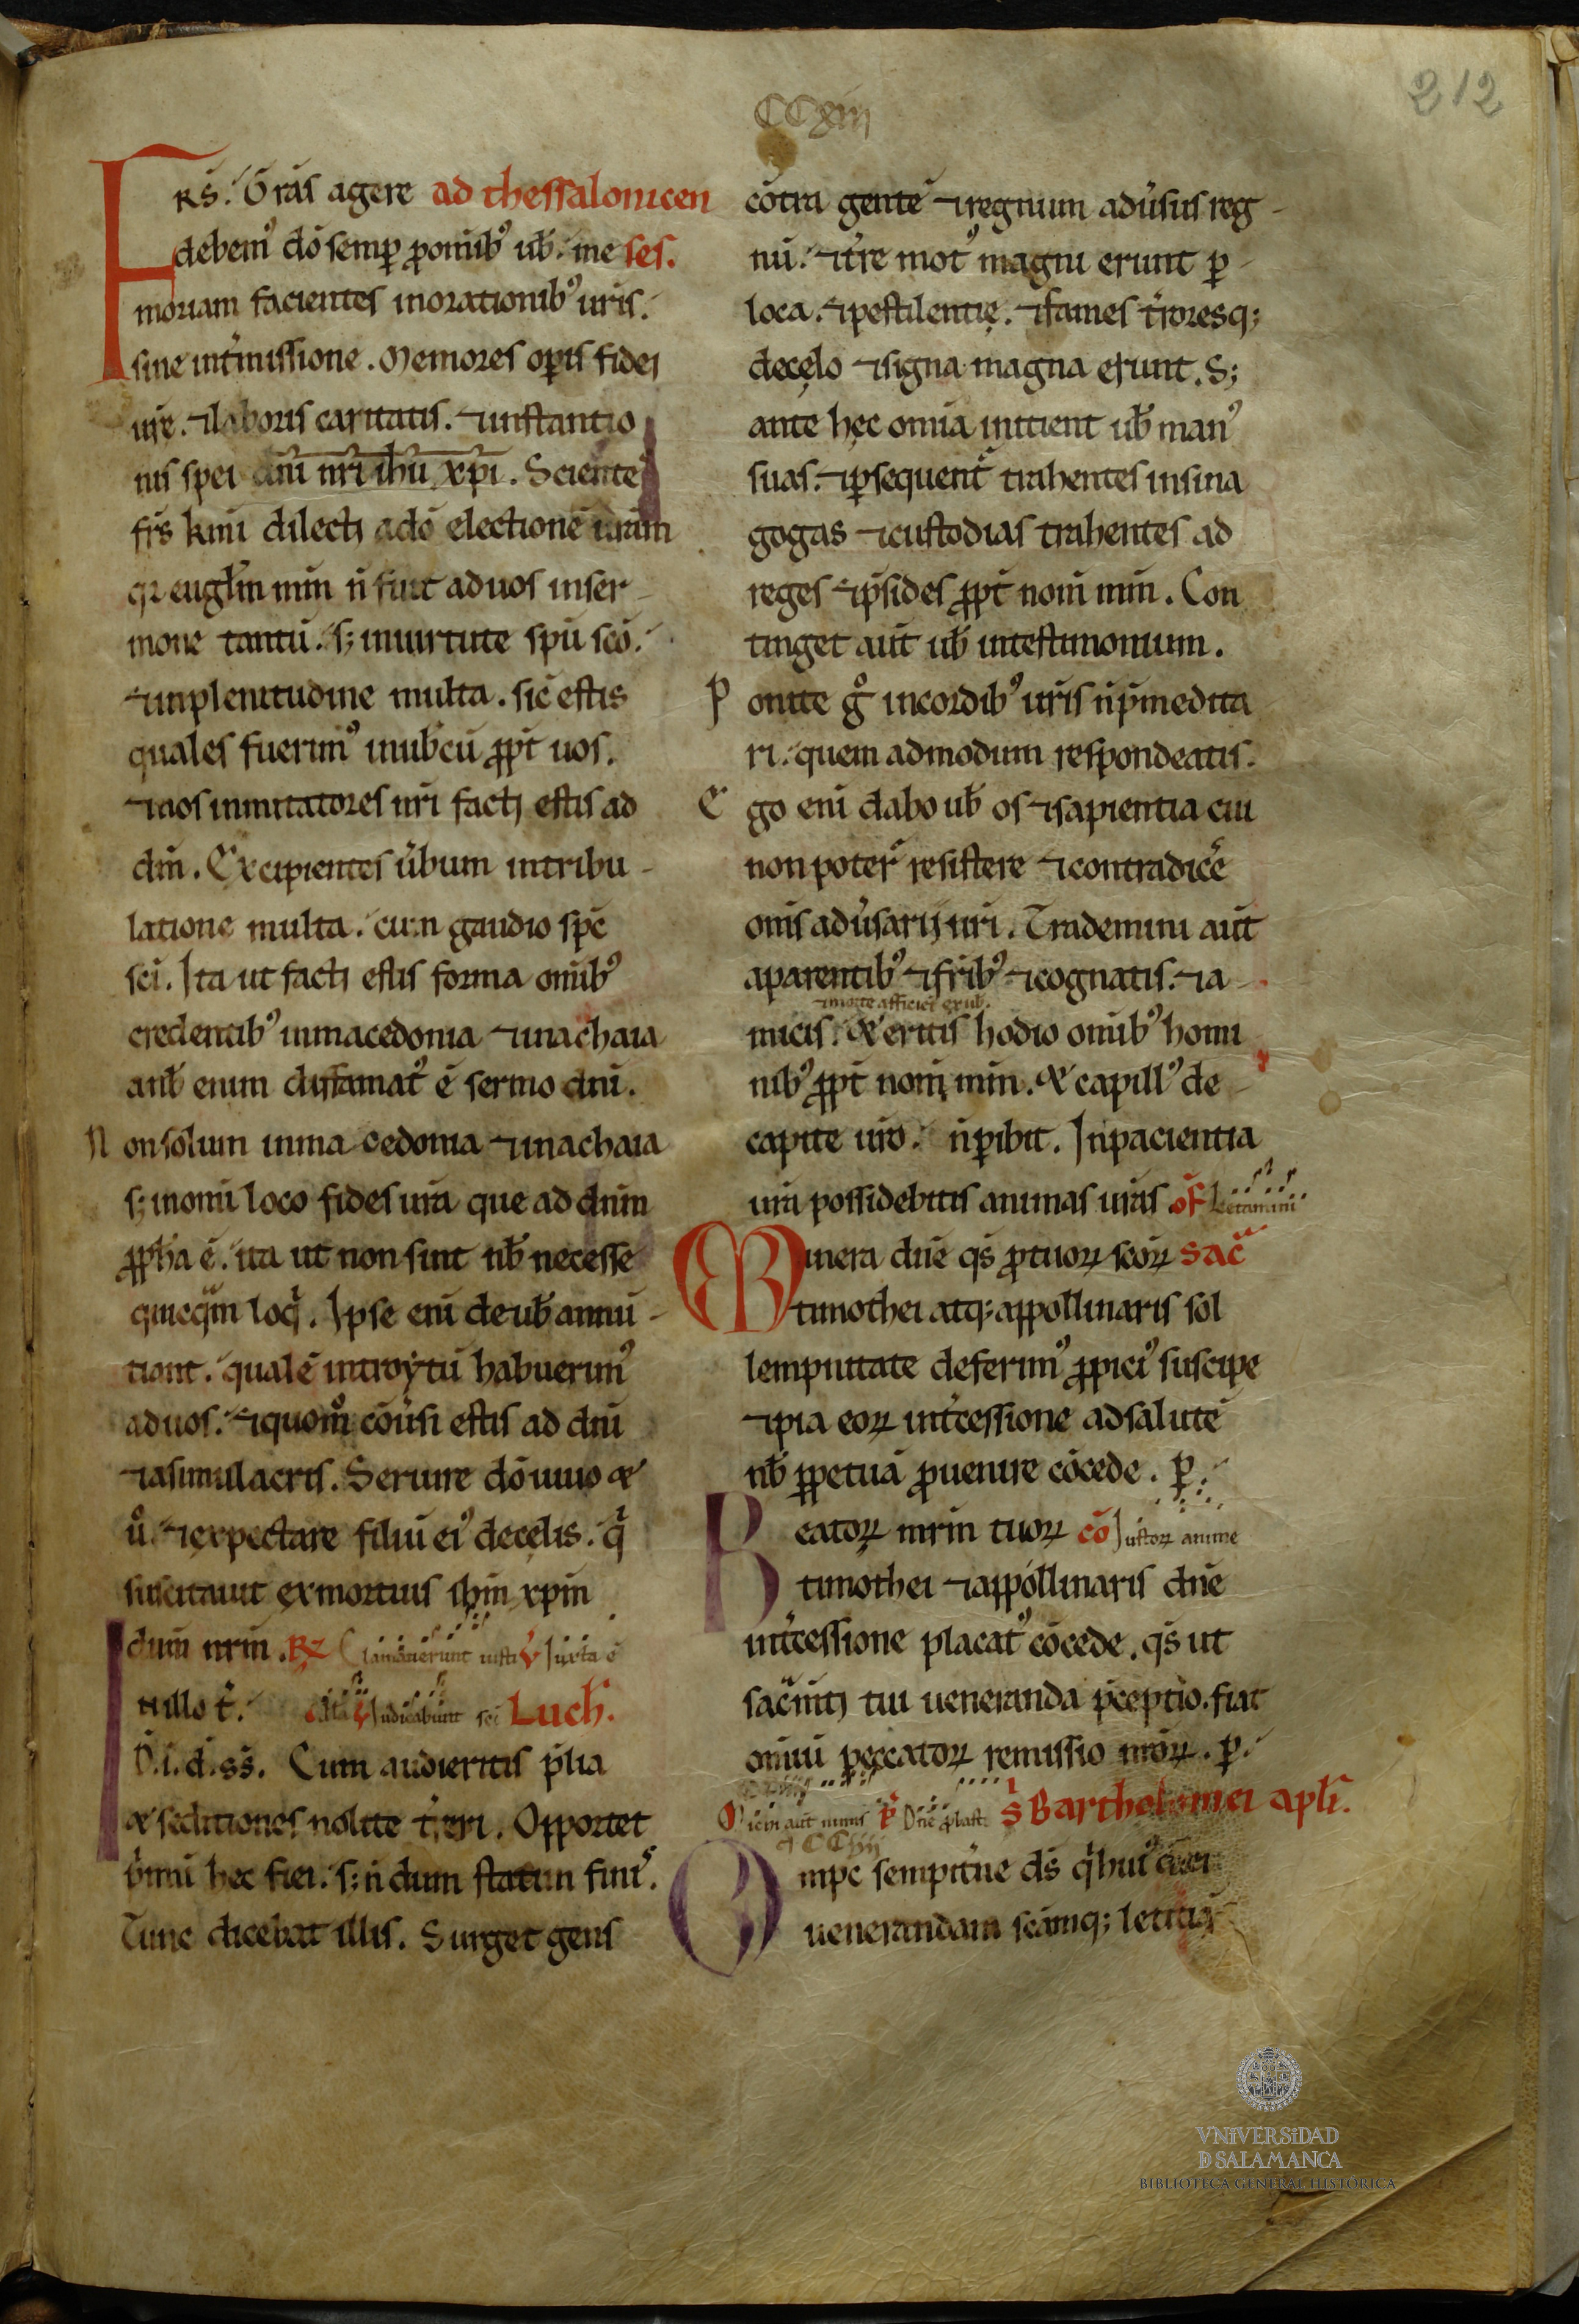 212
CCxiii
FRS. Grās agere ad thessalonicen
debem⁹ dō semꝑ ꝓomib⁹ ub̄. me ses.
moriam facientes inorationib⁹ uris.
sine int̄missione. Memores oꝑis fidei
ur̄e. ⁊laboris caritatis. ⁊instantio
nis spei dnī nrī ihū xp̄i. Scientes
fr̄s kmi dilecti adō electionē urām
qꝛ euglm̄ nrm̄ n̄ fuit aduos inser
mone tantū. s; inuirtute spū scō.
⁊inplenitudine multa. sic̄ estis
quales fuerim⁹ inub̄cū ꝓpt̄ uos.
⁊uos inmitatores nrī facti estis ad
dm̄. Excipientes ūbum intribu
latione multa. cum gaudio spc̄
scī. Ita ut facti estis forma omīb⁹
credentib⁹ inmacedonia ⁊inachaia
aub̄ enim difamat⁹ ē sermo dnī.
Nonsolum inma cedonia ⁊inachaia
s; inomī loco fides urā que ad dnm̄
ꝓfc̄ta ē. ita ut non sint nb̄ necesse
qͥcqͣm loqͥ. Ipse enī de ub̄ annū
tiant. qualē introytū habuerim⁹
aduos. ⁊quom̊ cōūsi estis ad dnī
⁊asimulacris. Seruire dō uiuo &
ů. ⁊expectare filiū ei⁹ decęlis. qͥ
suscitauit exmortuis ihm̄ xp̄m
dnm̄ nrm̄. R̃ Clamauerunt iusti V̄ Iuxta ē
n illo t̄. all̄a V̄ Iudicabunt scī Luch̄.
D.i.d.ss̄. Cum audieritis p̄lia
& seditiones nolite t̄reri. Opportet
p̄mū hec fieri. s; n̄ dum statim finis.
Tunc dicebat illis. Surget gens
cōtra gentē ⁊regnum adūsus reg
nū. ⁊t̄re mot⁹ magni erunt ꝑ
loca. ⁊pestilentię. ⁊fames t̄roresq;
decęlo ⁊signa magna erunt. S;
ante hęc omīa inicient ub̄ man⁹
suas. ⁊ꝑsequent̄ trahentes insina
gogas ⁊custodias trahentes ad
reges ⁊p̄sides ꝓpt̄ nom̄ mm̄. Con
tinget aut̄ ub̄ intestimonium.
Ponite g̊ incordib⁹ urīs n̄p̄medita
ri. quem admodum respondeatis.
Ego enī dabo ub̄ os ⁊sapientia cui
non poter̄ resistere ⁊contradicēe
omīs adūsarij urī. Trademini aut̄
aparentib⁹ ⁊frīb⁹ ⁊cognatis. ⁊a
⁊morte afficiet ex ub̄.
micis. & eritis hodio omīb⁹ homi
nib⁹ ꝓpt̄ nom̄ mm̄. & capill⁹ de
capite urō. n̄ꝑibit. Inpacientia
urā possidebitis animas urās of̄ Letamini
Munera dnē qs̄ ꝓtuoꝝ scōꝝ Sac̄
timothei atq; appollinaris sol
lempnitate deferim⁹ ꝓpici⁹ suscipe
⁊pia eoꝝ int̄cessione adsalutē
nb̄ ꝑpetuā ꝓuenire cōcede. ꝑ.
Beatoꝝ mr̄m tuoꝝ cō Iustoꝝ anime
timothei ⁊appollinaris dnē
int̄cessione placat⁹ cōcede. qs̄ ut
sacm̄ti tui ueneranda p̄ceptio. fiat
omīū peccatoꝝ remissio nrōꝝ. ꝑ.
Michi aut̄ nimis P̄ Dnē ꝓbast. S̄ Bartholomei apli.
CCiiij
Omp̄c sempit̄ne ds̄ qͥ hui⁹ diei
uenerandam scāmq; letitiā
VNiVERSiDAD
D SALAMANCA
BIBLIOTECA GENERAL HISTÓRICA